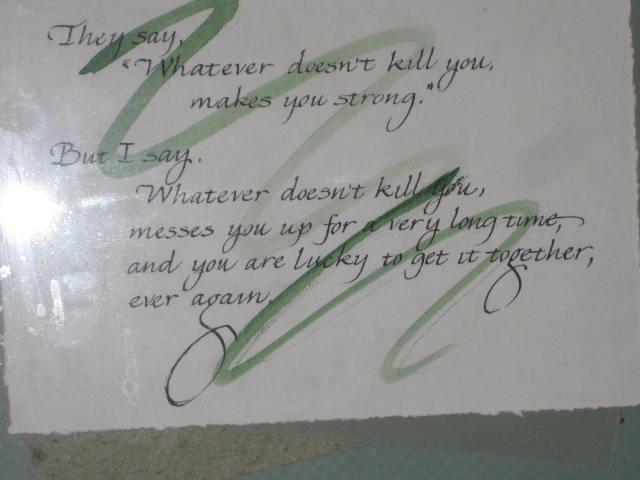 They say,
"Whatever doesn't kill you,
makes you strong."
But I say.
Whatever doesn't kill you,
messes you up for a very long time,
and you are lucky to get it together,
ever again.